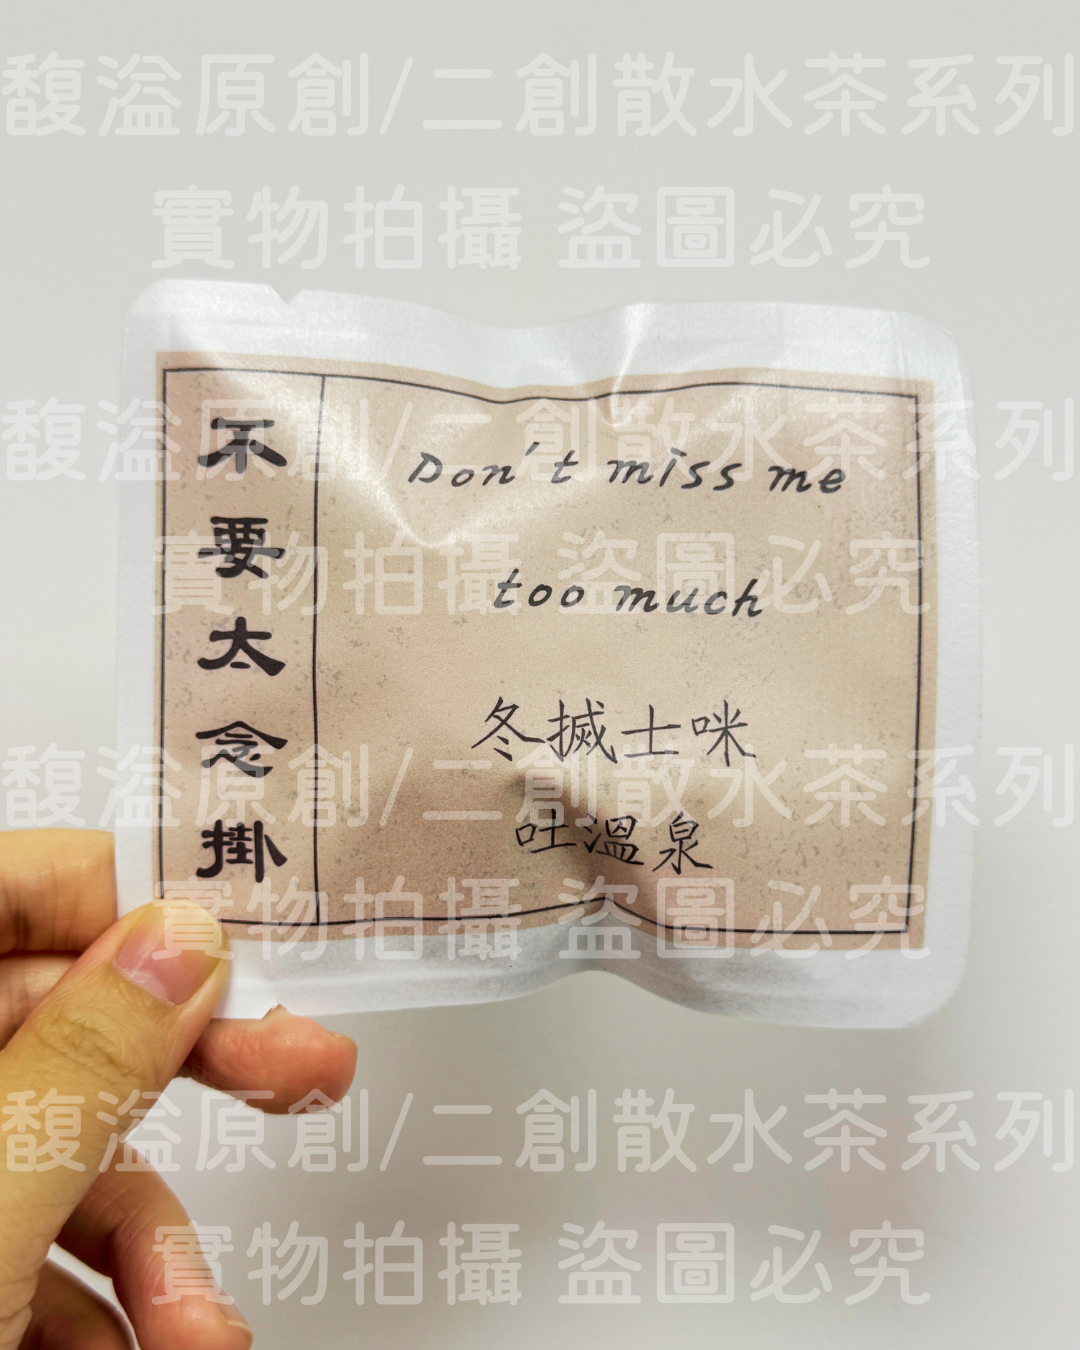 馥溢原創/二創散水茶系列
實物拍攝 盜圖必究
不要太念掛
Don't miss me
too much
冬搣士咪
吐溫泉
馥溢原創/二創散水茶系列
實物拍攝 盜圖必究
馥溢原創/二創散水茶系列
實物拍攝 盜圖必究
馥溢原創/二創散水茶系列
實物拍攝 盜圖必究